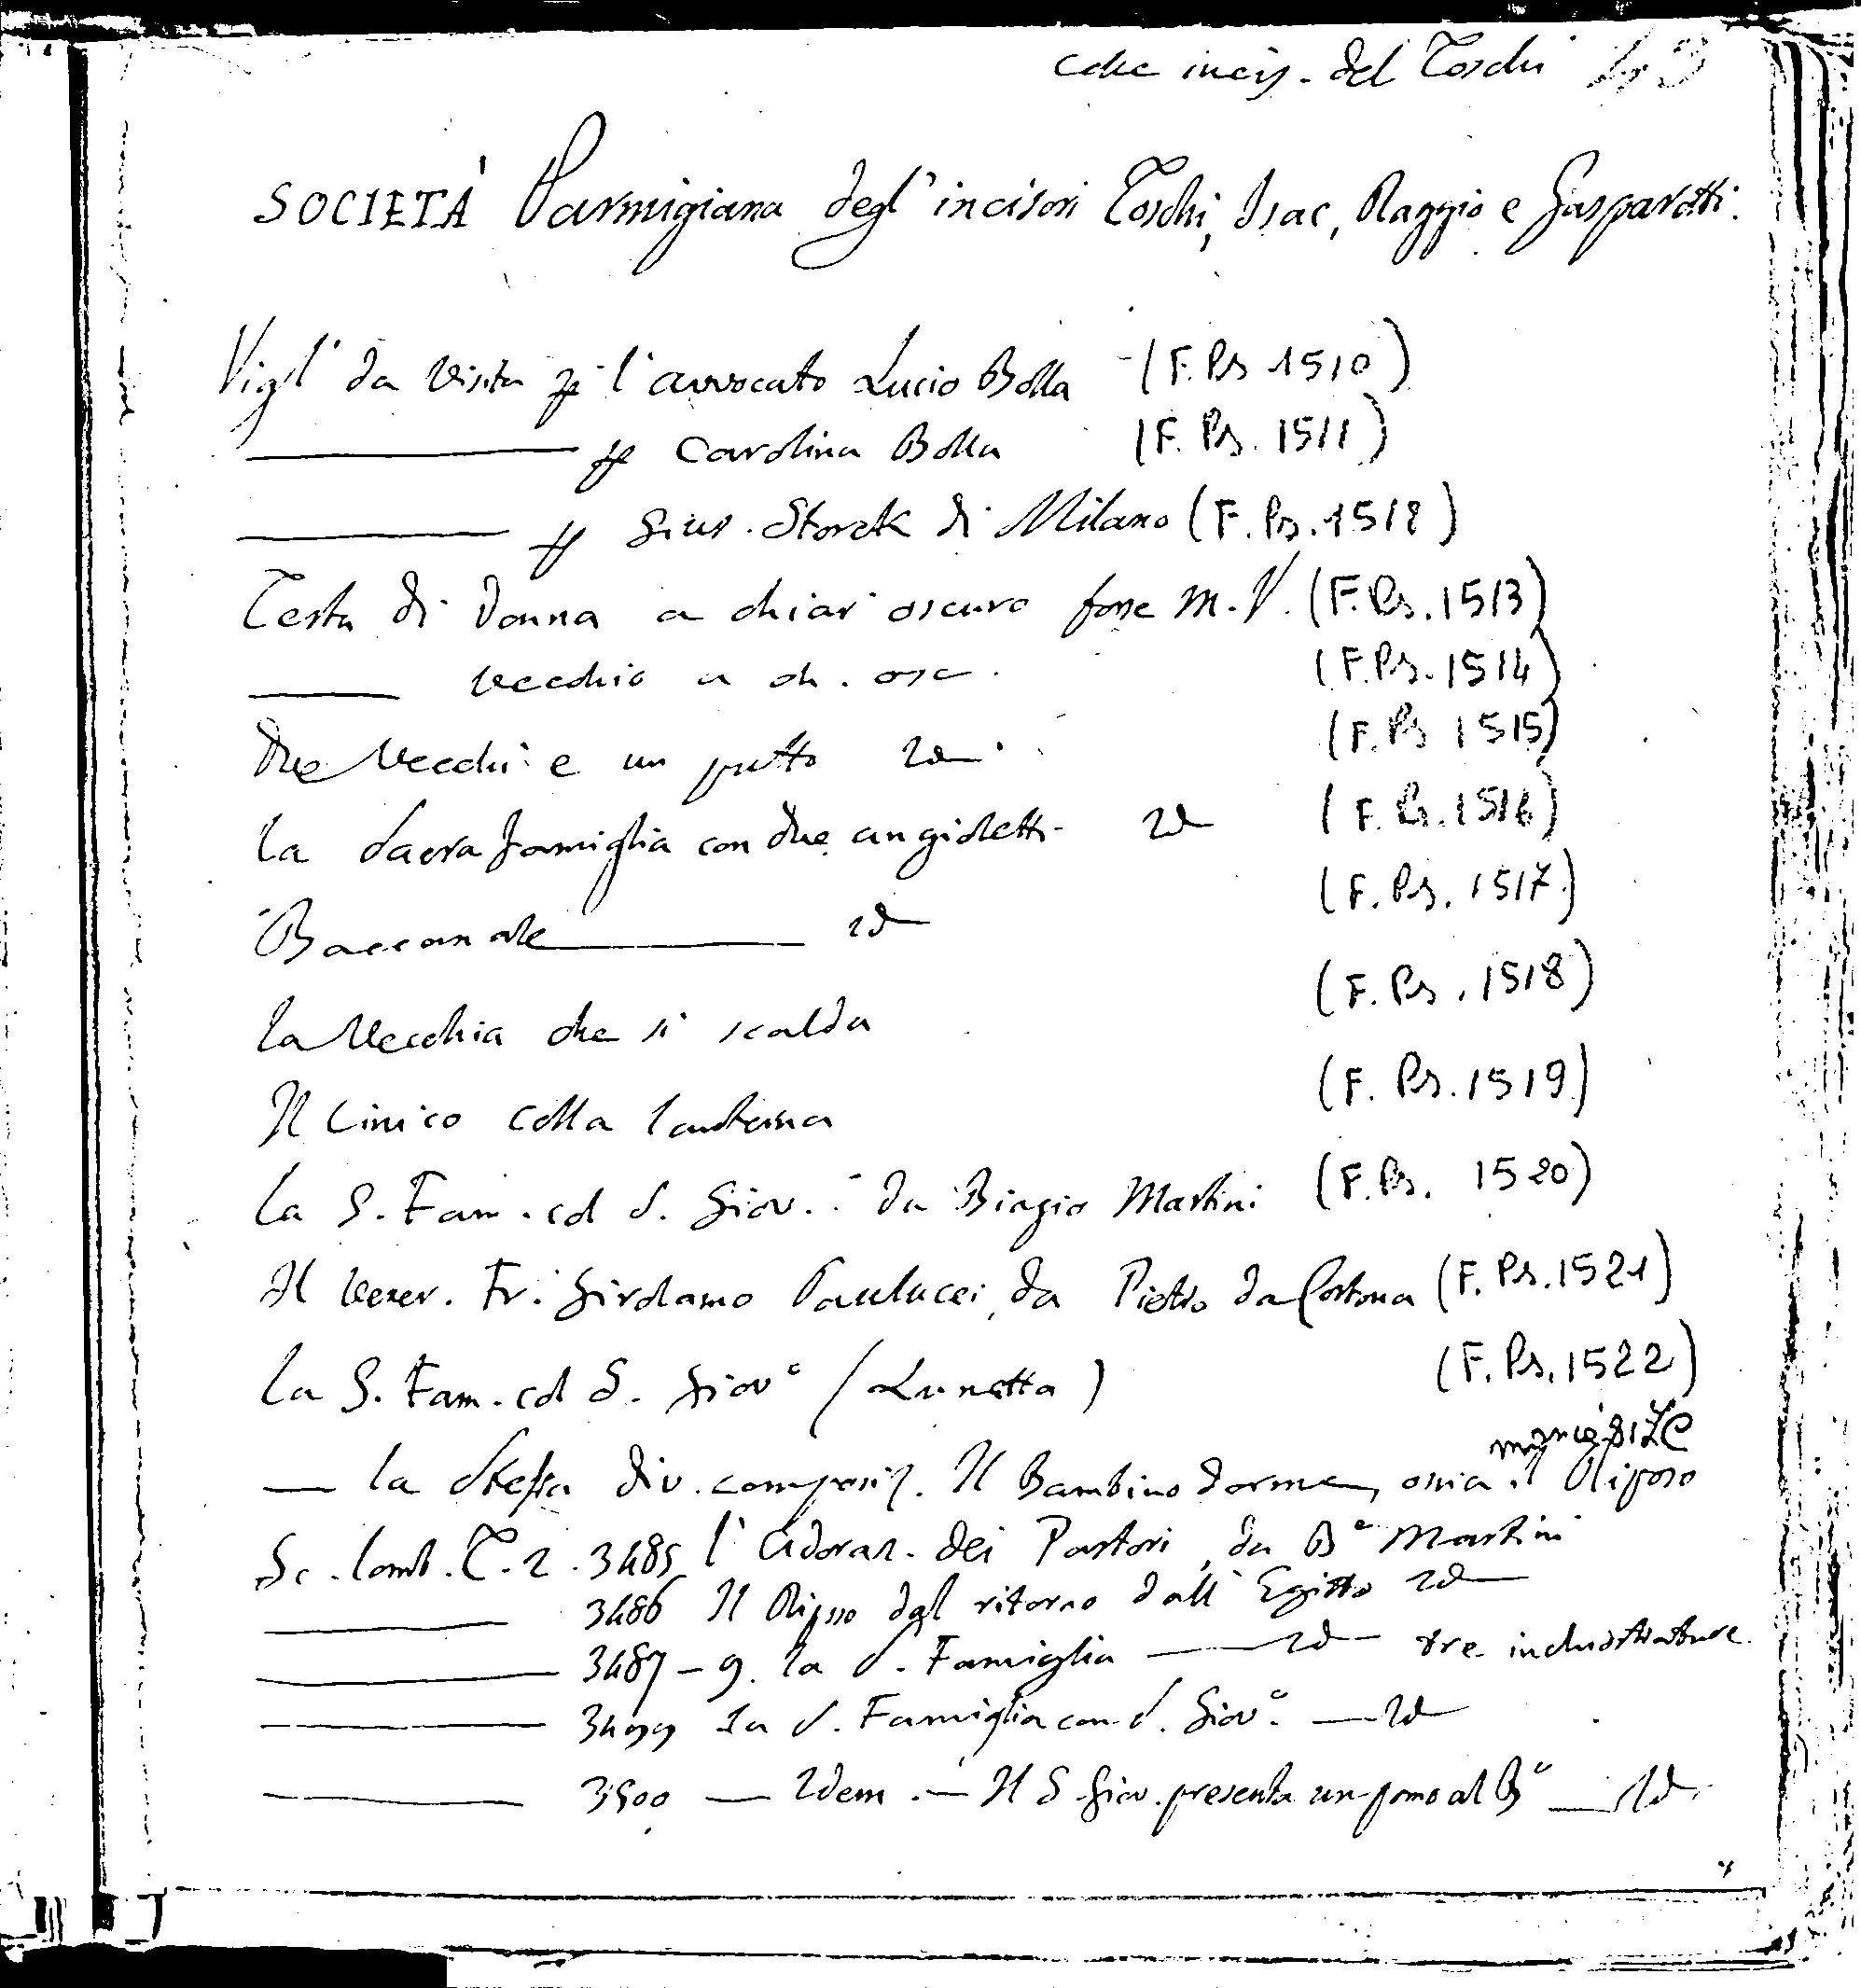 colle incis. del Toschi 43
SOCIETÀ Parmigiana degl'incisori Toschi, Isac, Raggio e Gasparotti.
Vigl' da visita p l'avvocato Lucio Bolla (F. Ps 1510)
p Carolina Bolla (F. Ps. 1511)
p Gius. Storck di Milano (F. Ps. 1512)
Testa di donna a chiar'oscuro forse M.V. (F. Ps. 1513)
vecchio a ch. osc. (F. Ps. 1514)
Due Vecchi e un putto id (F. Ps 1515)
la Sacra famiglia con due angioletti id (F. Ps. 1516)
Baccanale id (F. Ps. 1517)
la Vecchia che si scalda (F. Ps. 1518)
Il Cinico colla lanterna (F. Ps. 1519)
La S. Fam. col S. Giov. da Biagio Martini (F. Ps. 1520)
Il Vener. Fr. Girolamo Paulucci, da Pietro da Cortona (F. Ps. 1521)
La S. Fam. col S. Giovº (Lunetta) (F. Ps. 1522)
— la stessa div. composiz. Il Bambino dorme, ossia il Riposo
Sc. lomb. T. 2. 3485 l'Adoraz. dei Pastori, da Bº Martini
3486 Il Riposo dal ritorno dall'Egitto id
3487-9. la S. Famiglia — id — tre inchiostrature
3499 la S. Famiglia con S. Giovº. — id
3500 — Idem. — Il S Giov. presenta un pomo al Bº — id